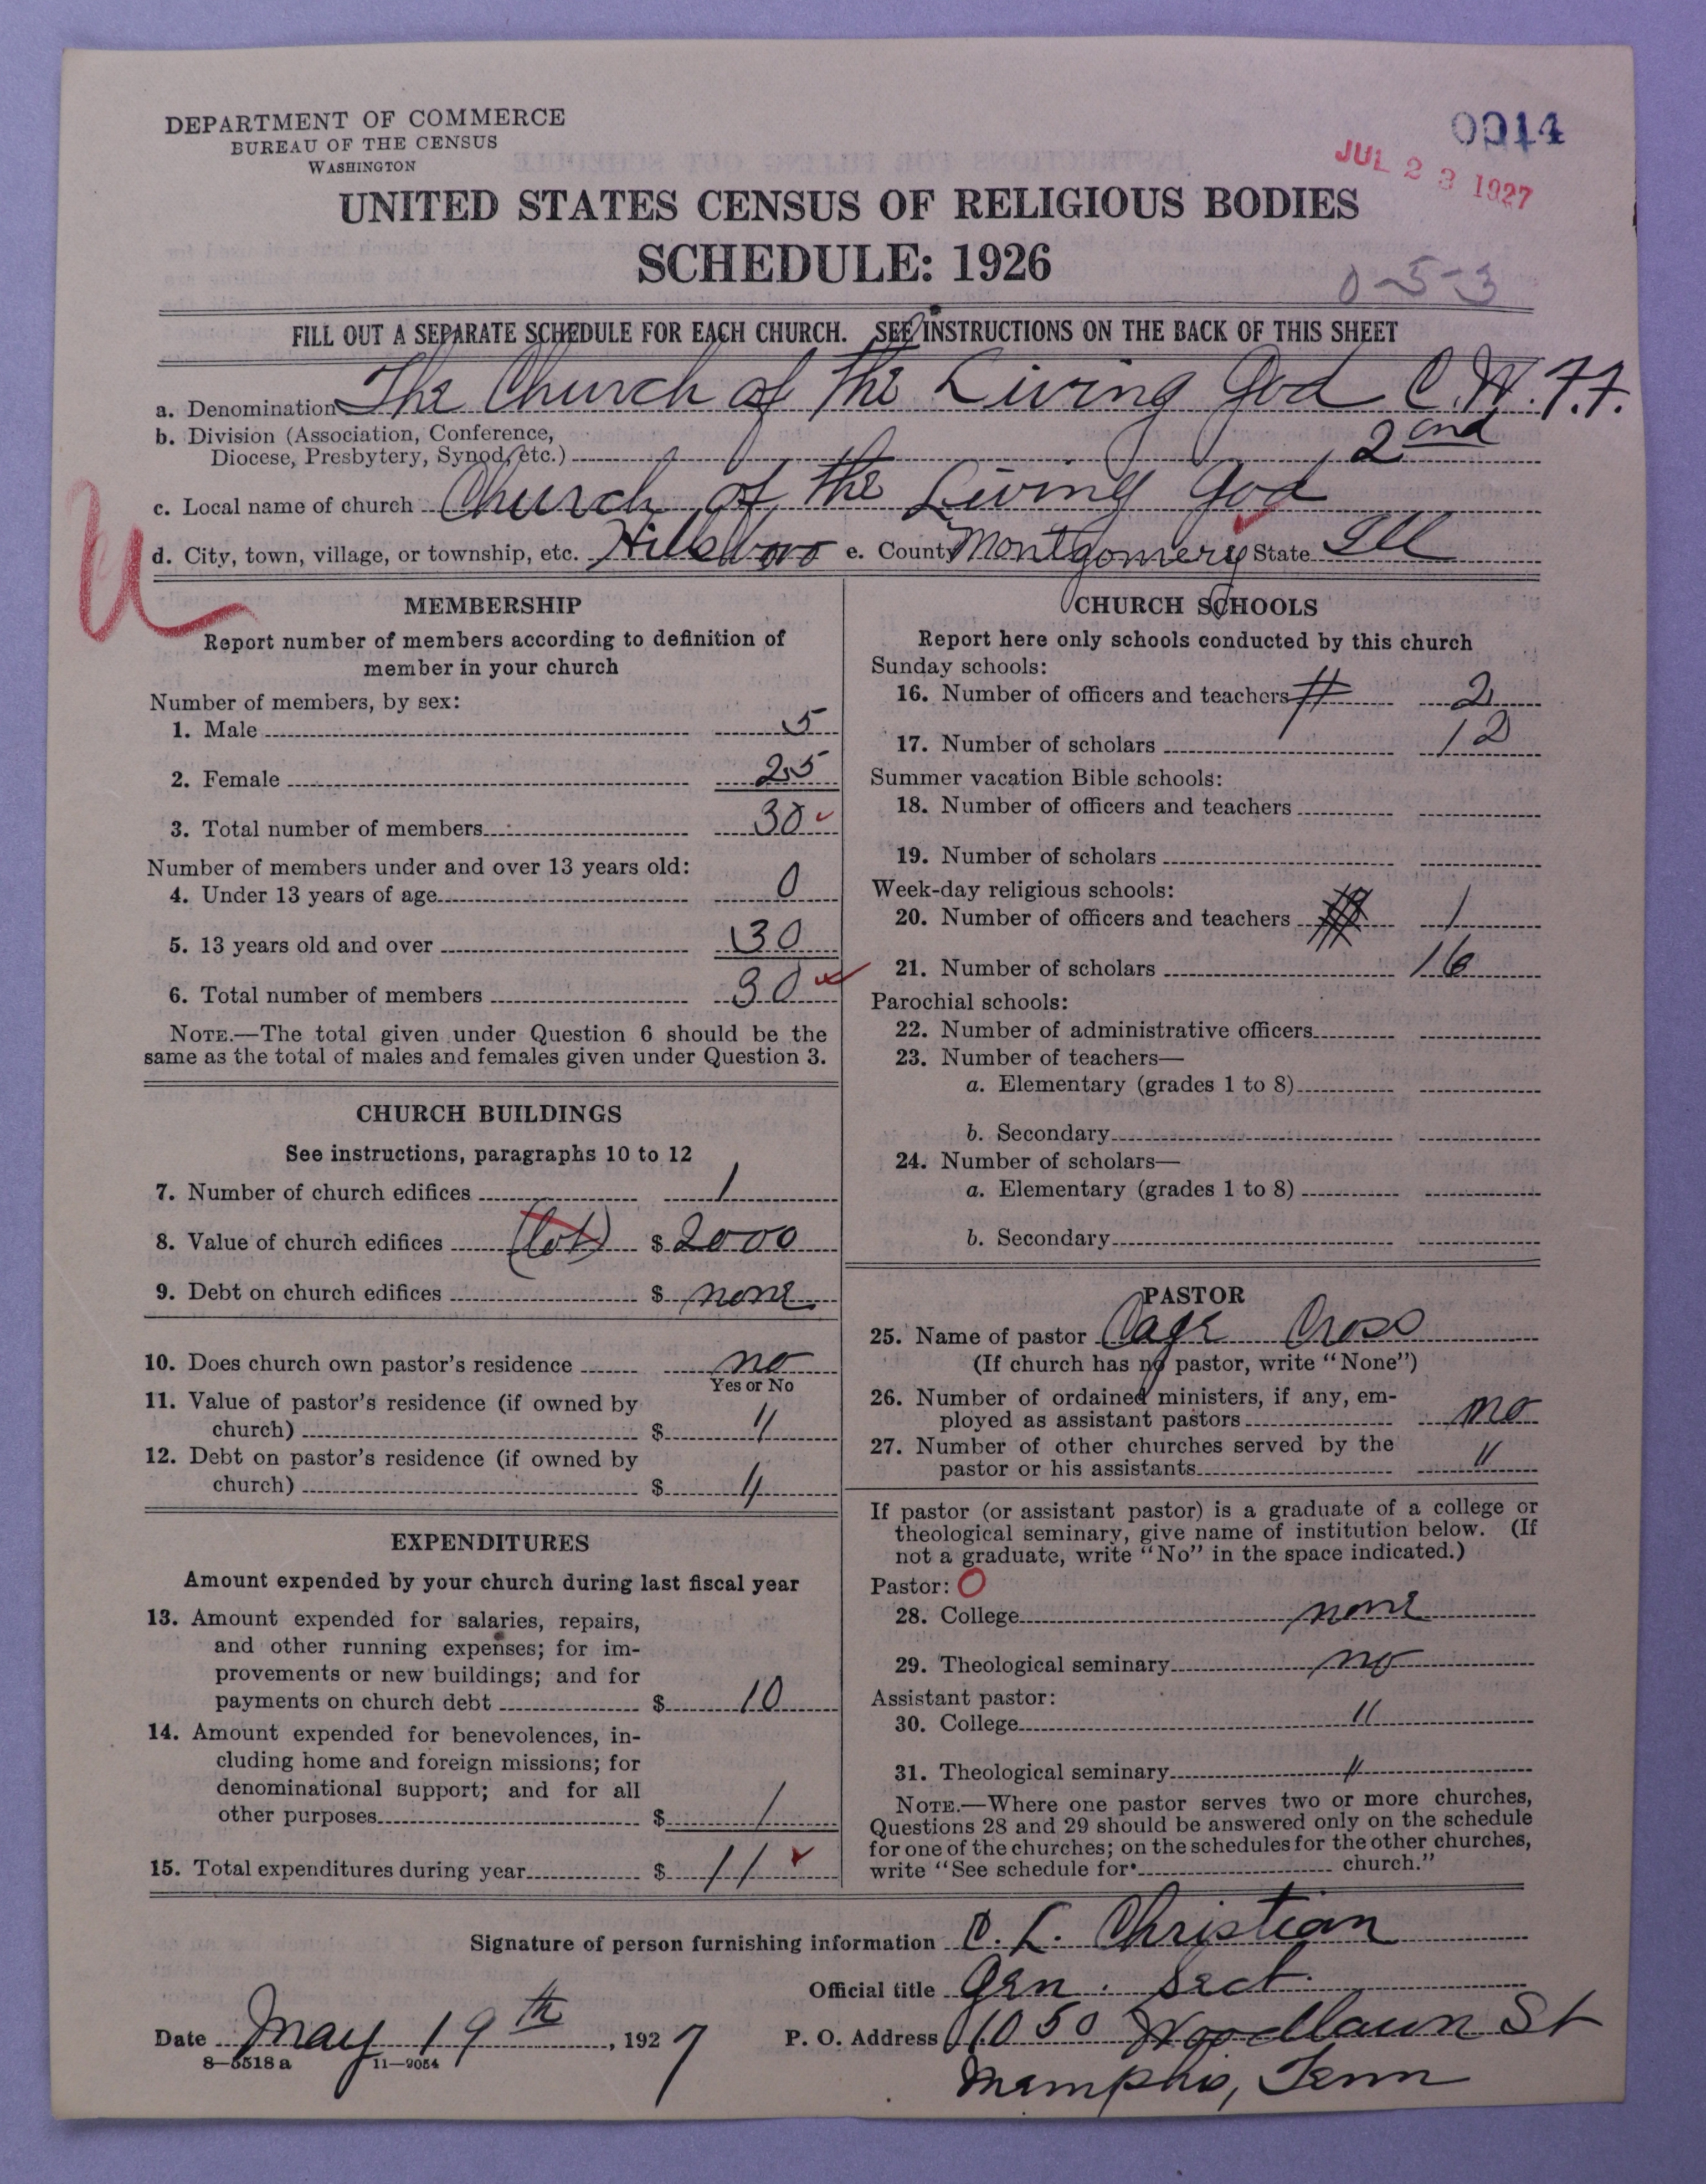 DEPARTMENT OF COMMERCE
BUREAU OF THE CENSUS
WASHINGTON
0014
JUL 23 1927
UNITED STATES CENSUS OF RELIGIOUS BODIES
SCHEDULE: 1926
0-5-3
FILL OUT A SEPARATE SCHEDULE FOR EACH CHURCH. SEE INSTRUCTIONS ON THE BACK OF THIS SHEET
a. Denomination The Church of the Living God C.W.F.F.
b. Division (Association, Conference,
Diocese, Presbytery, Synod, etc.) 2nd
c. Local name of church Church of the Living God
d. City, town, village, or township, etc. Hillsboro e. County Montgomery State Ill
MEMBERSHIP
Report number of members according to definition of
member in your church
Number of members, by sex:
1. Male 5
2. Female 25
3. Total number of members 30
Number of members under and over 13 years old:
4. Under 13 years of age 0
5. 13 years old and over 30
6. Total number of members 30
NOTE.—The total given under Question 6 should be the
same as the total of males and females given under Question 3.
CHURCH BUILDINGS
See instructions, paragraphs 10 to 12
7. Number of church edifices 1
8. Value of church edifices (lot) $ 2000
9. Debt on church edifices $ none
10. Does church own pastor's residence no
Yes or No
11. Value of pastor's residence (if owned by
church) $ "
12. Debt on pastor's residence (if owned by
church) $ "
EXPENDITURES
Amount expended by your church during last fiscal year
13. Amount expended for salaries, repairs,
and other running expenses; for im-
provements or new buildings; and for
payments on church debt $ 10
14. Amount expended for benevolences, in-
cluding home and foreign missions; for
denominational support; and for all
other purposes $ 1
15. Total expenditures during year $ 11
CHURCH SCHOOLS
Report here only schools conducted by this church
Sunday schools:
16. Number of officers and teachers 2
17. Number of scholars 12
Summer vacation Bible schools:
18. Number of officers and teachers
19. Number of scholars
Week-day religious schools:
20. Number of officers and teachers 1
21. Number of scholars 16
Parochial schools:
22. Number of administrative officers
23. Number of teachers—
a. Elementary (grades 1 to 8)
b. Secondary
24. Number of scholars—
a. Elementary (grades 1 to 8)
b. Secondary
PASTOR
25. Name of pastor Cage Cross
(If church has no pastor, write "None")
26. Number of ordained ministers, if any, em-
ployed as assistant pastors no
27. Number of other churches served by the
pastor or his assistants "
If pastor (or assistant pastor) is a graduate of a college or
theological seminary, give name of institution below. (If
not a graduate, write "No" in the space indicated.)
Pastor: O
28. College none
29. Theological seminary no
Assistant pastor:
30. College "
31. Theological seminary "
NOTE.—Where one pastor serves two or more churches,
Questions 28 and 29 should be answered only on the schedule
for one of the churches; on the schedules for the other churches,
write "See schedule for church."
Signature of person furnishing information C. L. Christian
Official title Gen. Sect.
Date May 19th, 1927 P. O. Address 1050 Woodlawn St
Memphis, Tenn
8—5518 a 11—9054